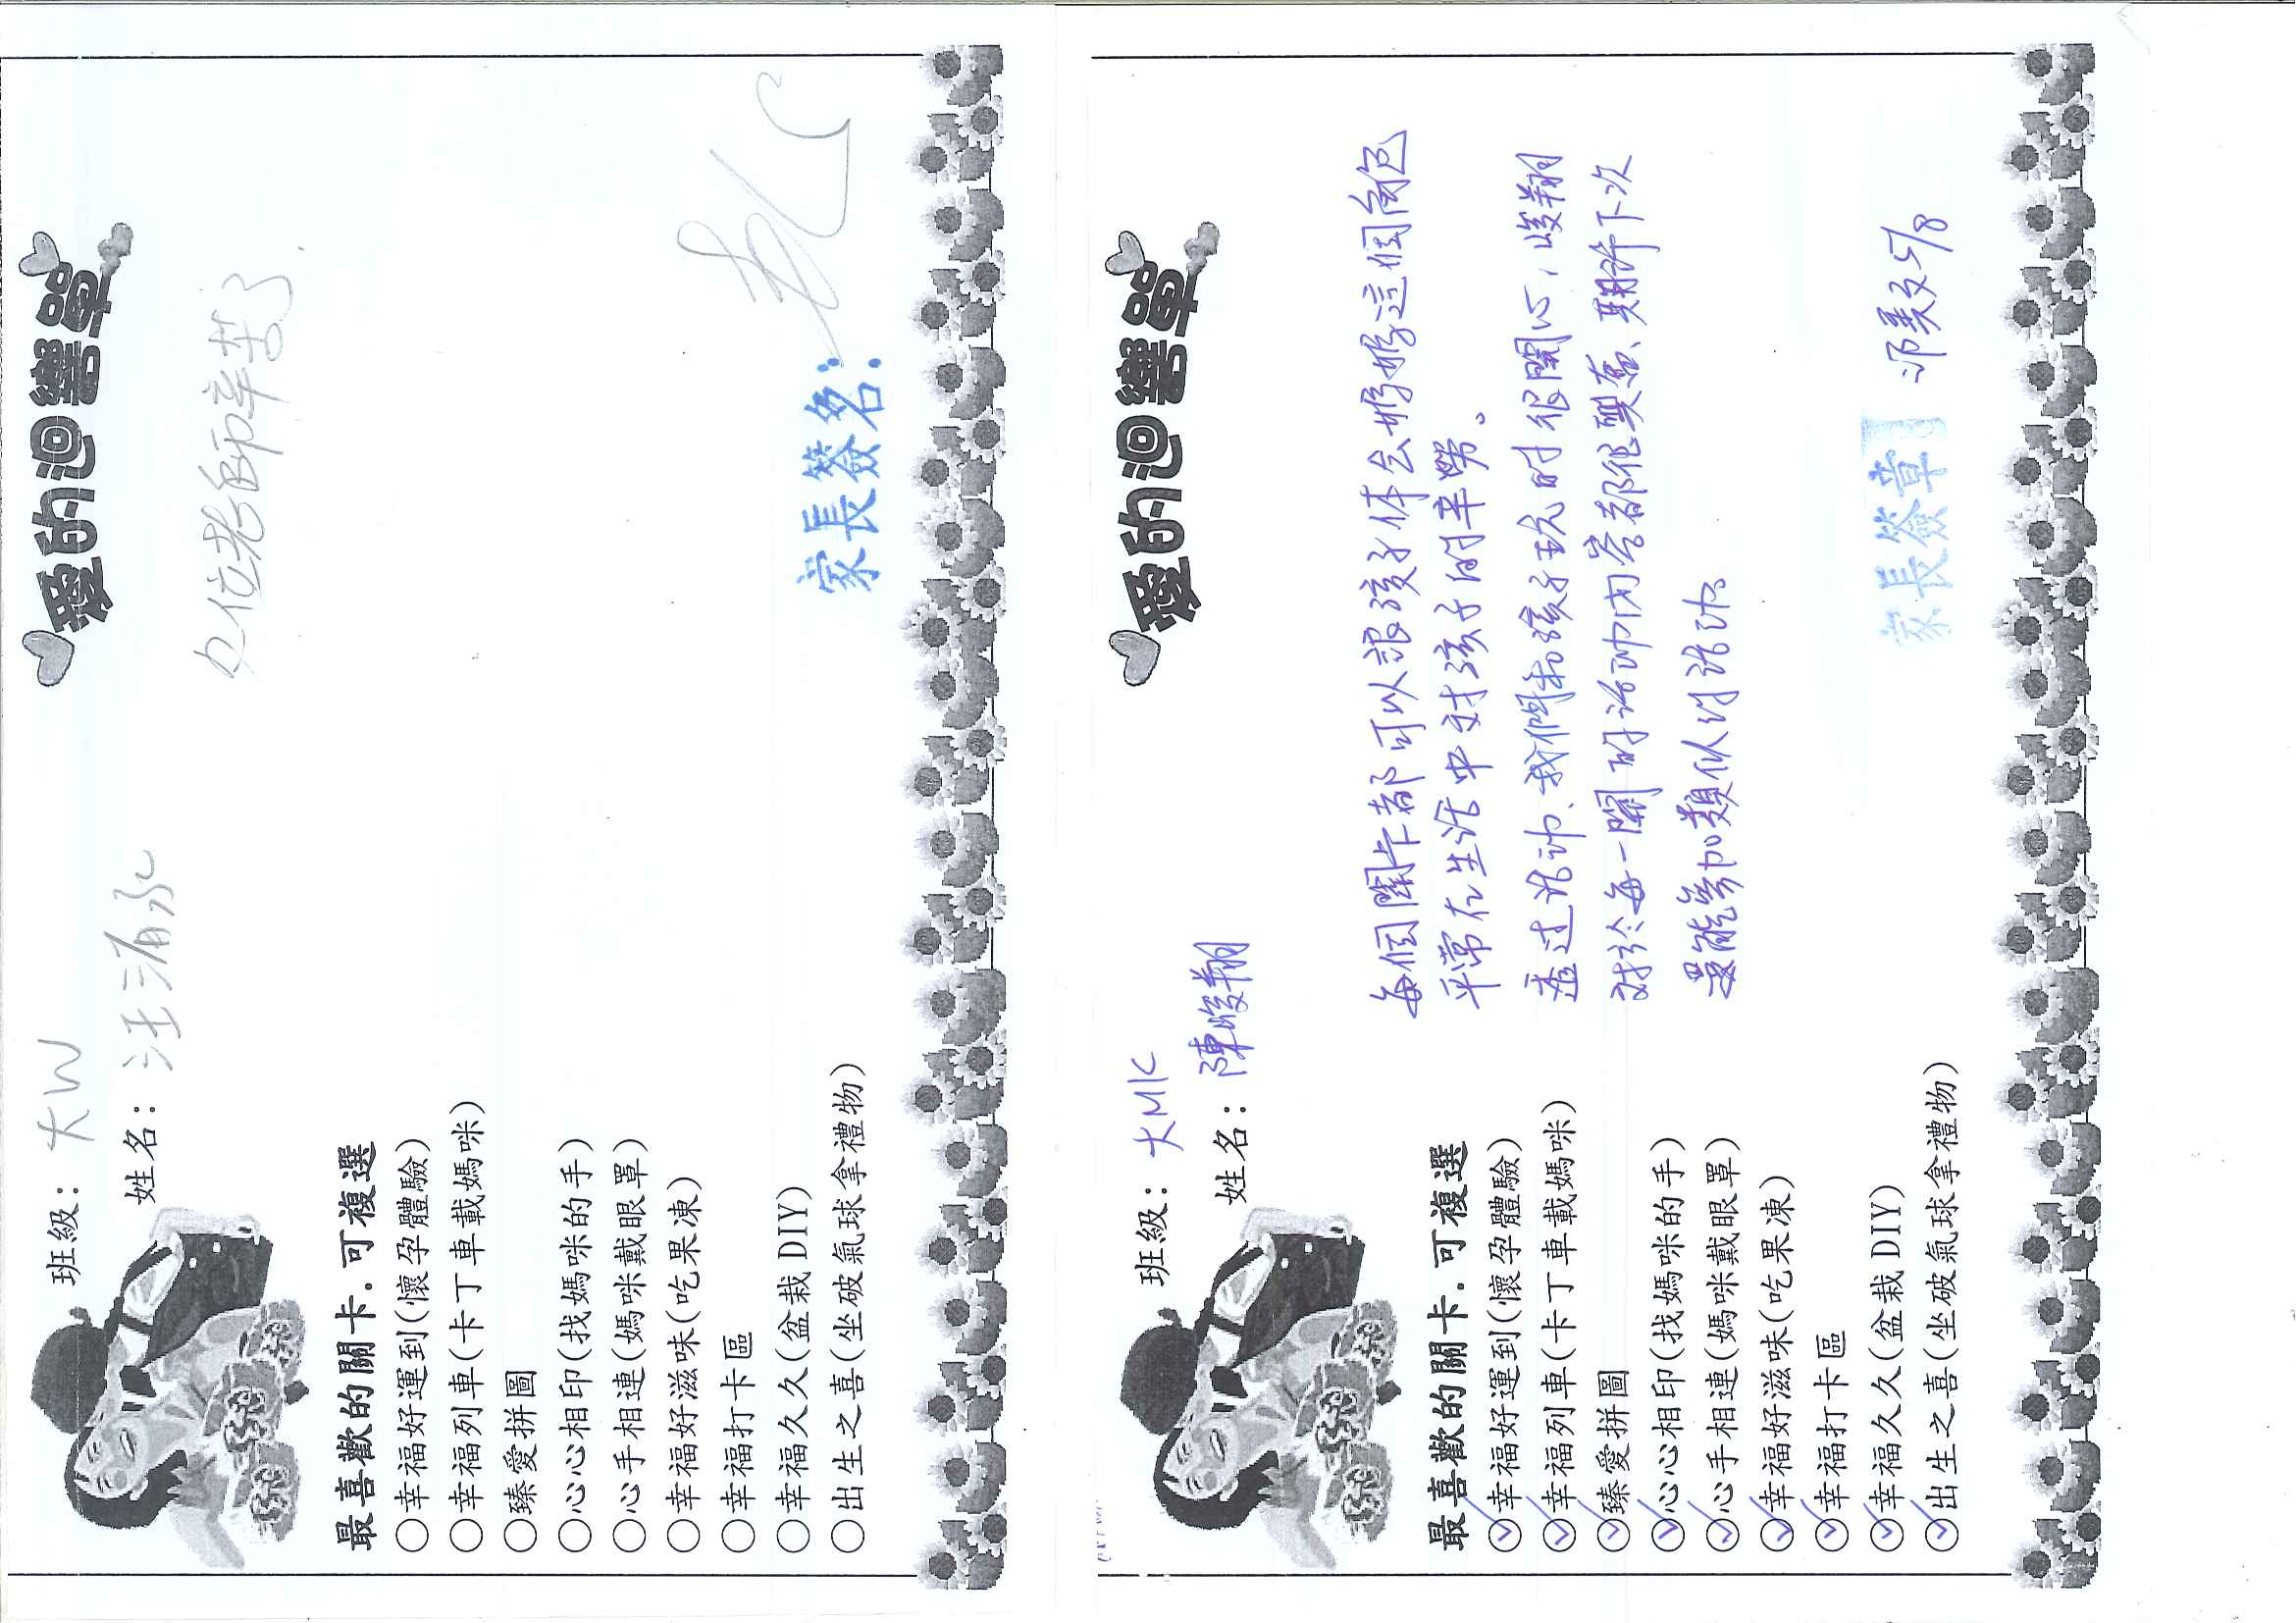 愛的迴響單
班級：大W
姓名：汪
各位老師辛苦了
最喜歡的關卡．可複選
○幸福好運到(懷孕體驗)
○幸福列車(卡丁車載媽咪)
○臻愛拼圖
○心心相印(找媽咪的手)
○心手相連(媽咪戴眼罩)
○幸福好滋味(吃果凍)
○幸福打卡區
○幸福久久(盆栽DIY)
○出生之喜(坐破氣球拿禮物)
家長簽名：
愛的迴響單
班級：大MK
姓名：陳峻翔
每個關卡都可以讓孩子体会媽媽這個角色
平常在生活中對孩子的辛勞。
透过活动、我們和孩子玩的很開心，峻翔
對於每一關的活动內容都很興奮、期許下次
還能參加類似的活动。
最喜歡的關卡．可複選
○幸福好運到(懷孕體驗)
○幸福列車(卡丁車載媽咪)
○臻愛拼圖
○心心相印(找媽咪的手)
○心手相連(媽咪戴眼罩)
○幸福好滋味(吃果凍)
○幸福打卡區
○幸福久久(盆栽DIY)
○出生之喜(坐破氣球拿禮物)
家長簽章
5/8